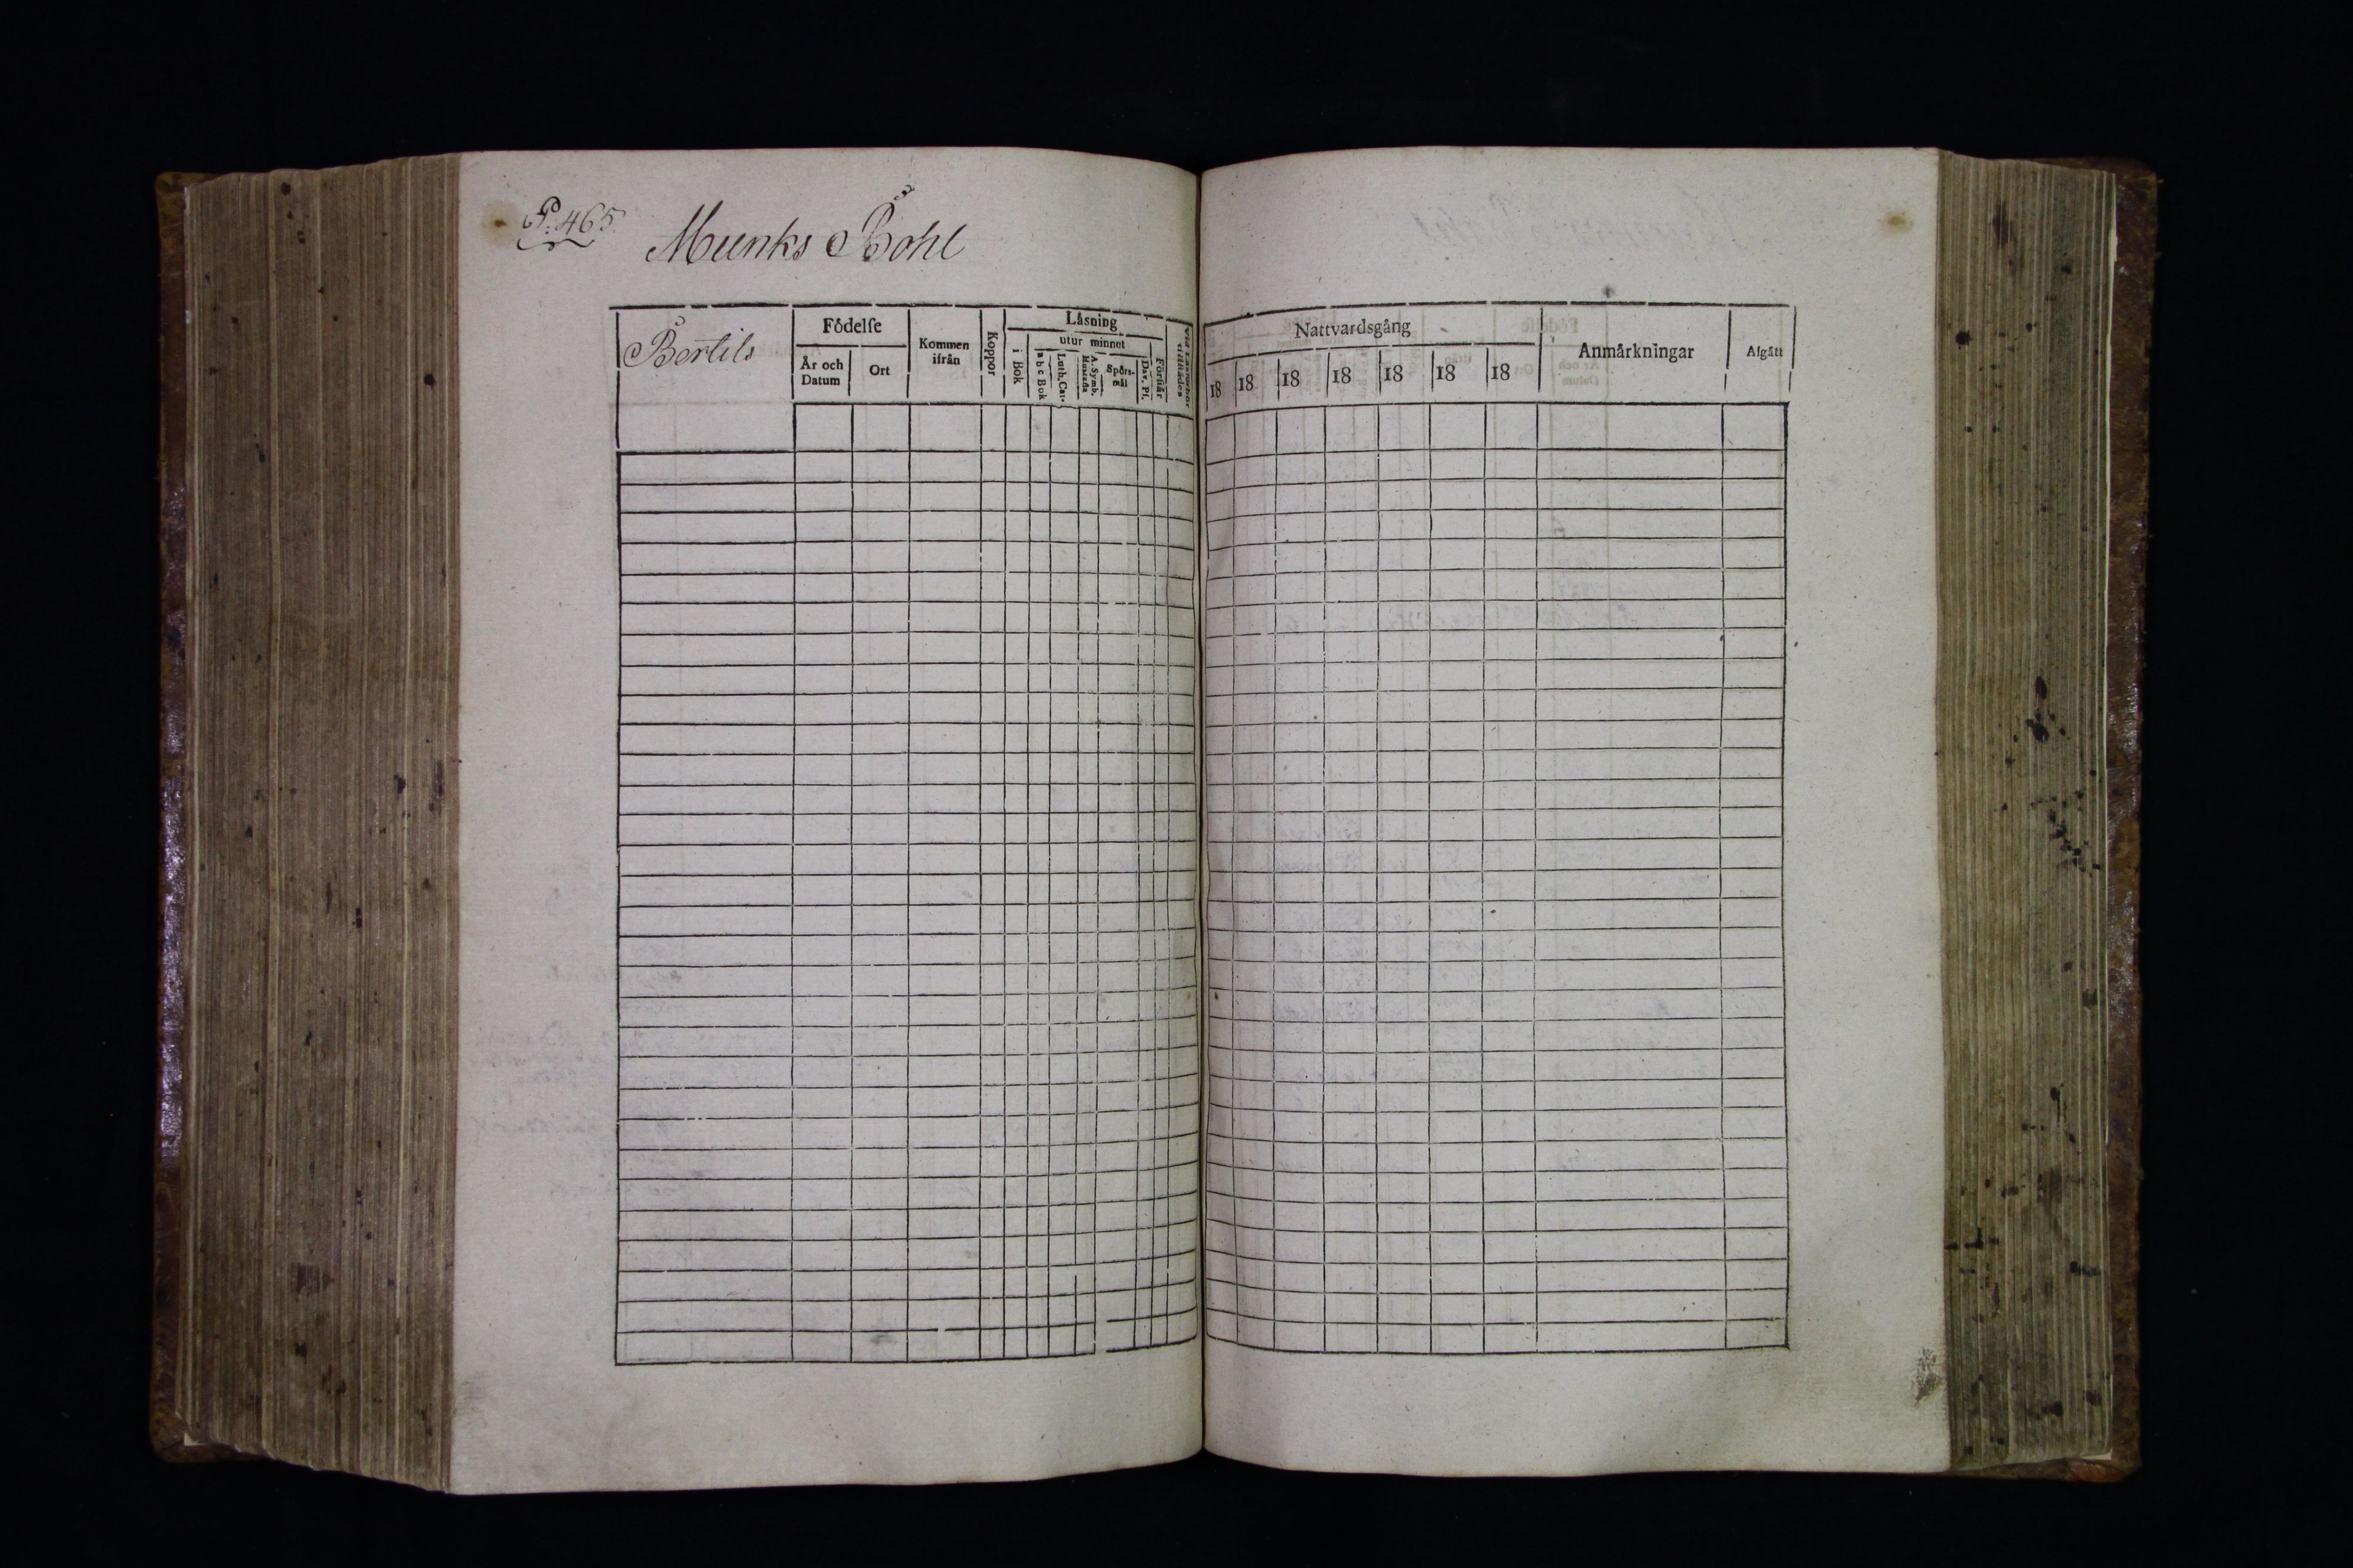 P. 465.
Munks Bohl
Bertils
Födelse
År och Datum
Ort
Kommen ifrån
Koppor
Läsning
utur minnet
i Bok
a b c Bok
Luth. Cat.
A. Symb. Hustafla
Spörsmål
Dav. Pl.
Förstår
Nattvardsgång
18 18 18 18 18 18 18
Anmärkningar
Afgått